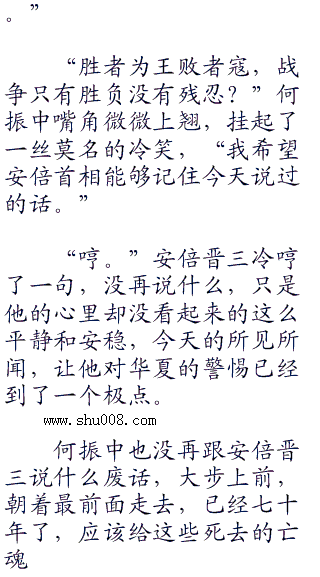 。”
“胜者为王败者寇，战
争只有胜负没有残忍？”何
振中嘴角微微上翘，挂起了
一丝莫名的冷笑，“我希望
安倍首相能够记住今天说过
的话。”
“哼。”安倍晋三冷哼
了一句，没再说什么，只是
他的心里却没看起来的这么
平静和安稳，今天的所见所
闻，让他对华夏的警惕已经
到了一个极点。
www.shu008.com
何振中也没再跟安倍晋
三说什么废话，大步上前，
朝着最前面走去，已经七十
年了，应该给这些死去的亡
魂